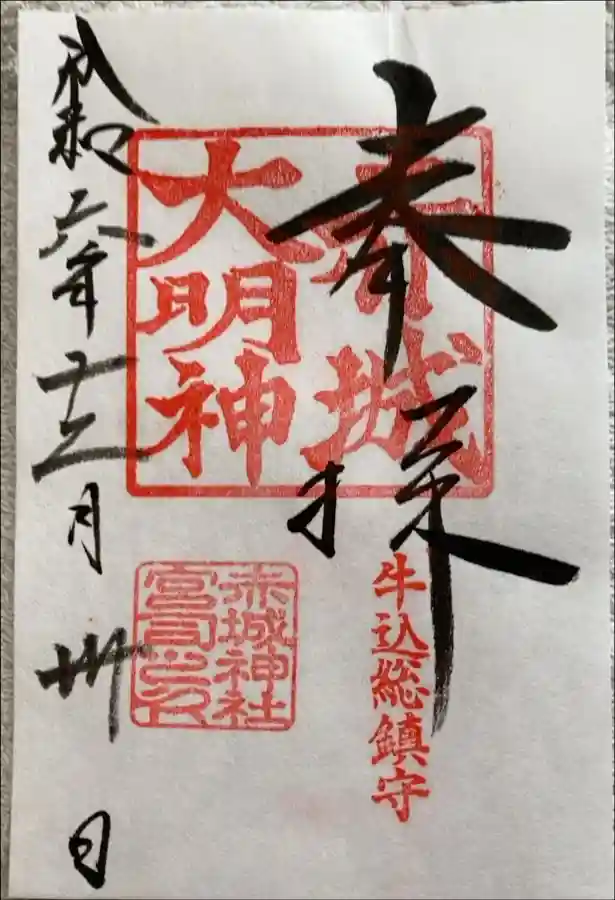 奉拝
牛込総鎮守
赤城
大明神
赤城神社
宮司之印
令和六年十二月卅日